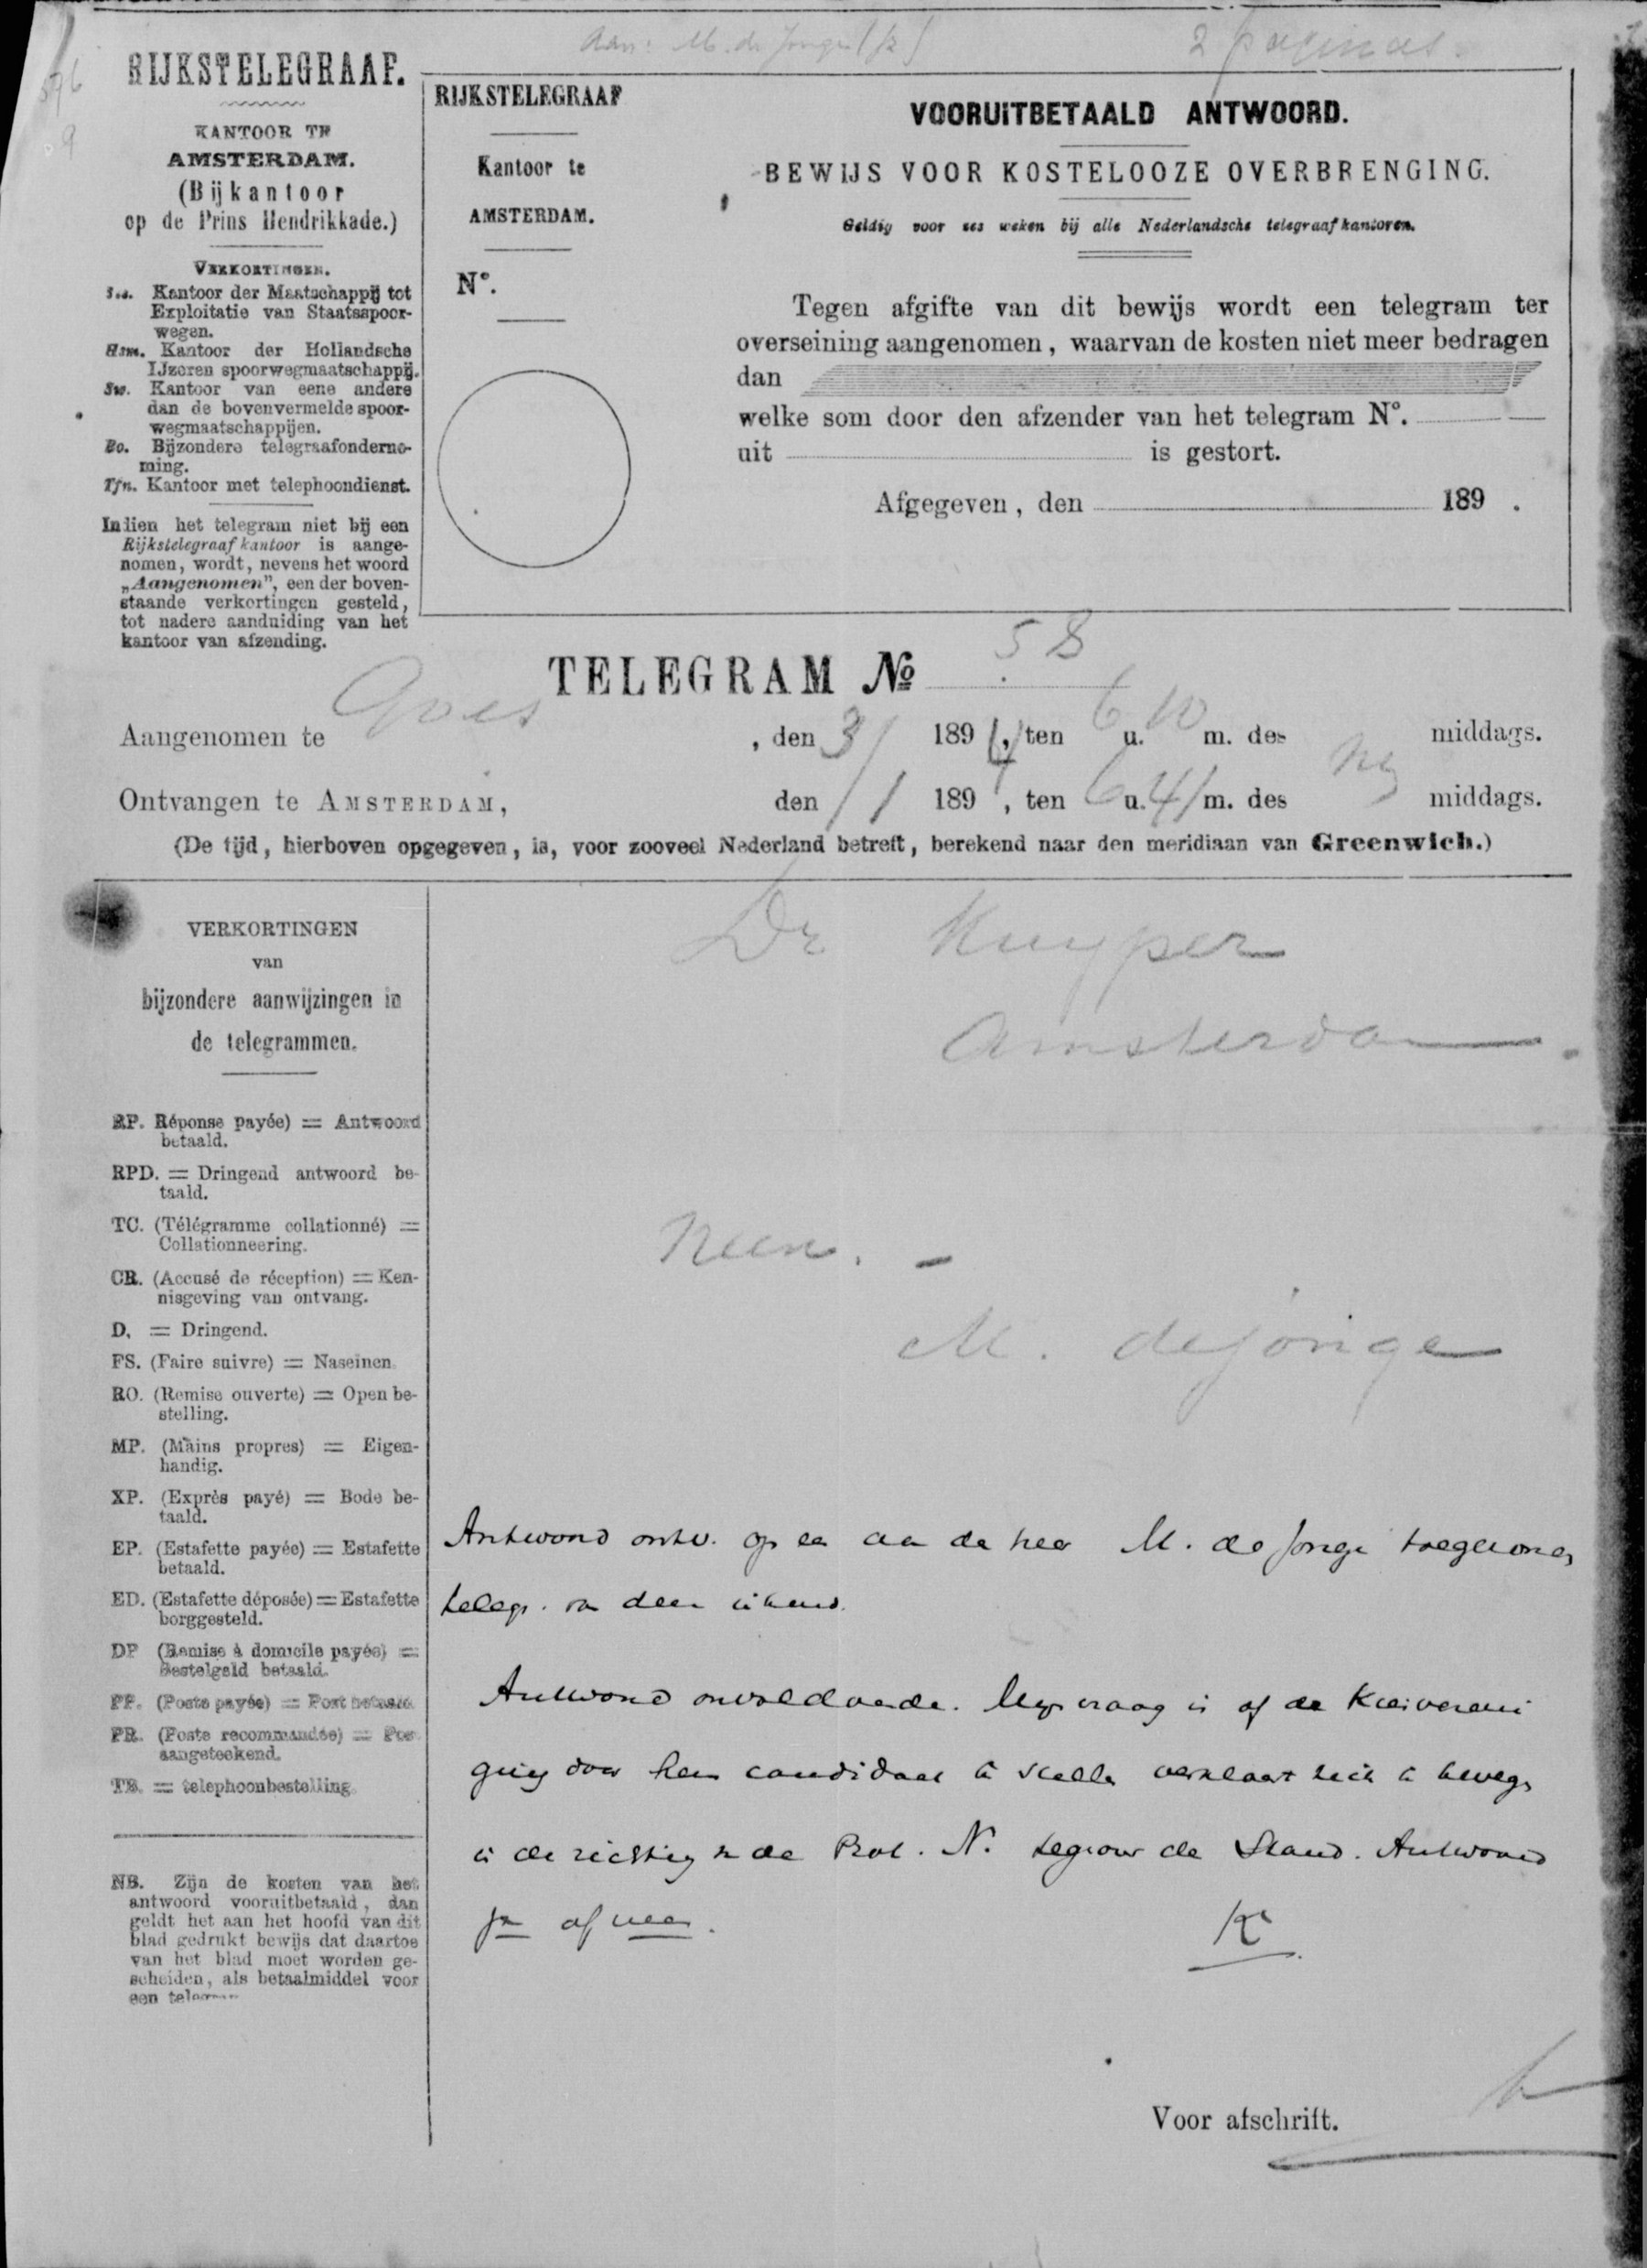 Aan: M. de Jonge (fz)
2 pagina's.
RIJKSTELEGRAAF.
KANTOOR TE
AMSTERDAM.
(Bijkantoor
op de Prins Hendrikkade.)
VERKORTINGEN.
S.s. Kantoor der Maatschappij tot
Exploitatie van Staatsspoor-
wegen.
Hsm. Kantoor der Hollandsche
IJzeren spoorwegmaatschappij.
Sw. Kantoor van eene andere
dan de bovenvermelde spoor-
wegmaatschappijen.
Bo. Bijzondere telegraafonderne-
ming.
Tfn. Kantoor met telephoondienst.
Indien het telegram niet bij een
Rijkstelegraafkantoor is aange-
nomen, wordt, nevens het woord
„Aangenomen", een der boven-
staande verkortingen gesteld,
tot nadere aanduiding van het
kantoor van afzending.
RIJKSTELEGRAAF
Kantoor te
AMSTERDAM.
N°.
VOORUITBETAALD ANTWOORD.
BEWIJS VOOR KOSTELOOZE OVERBRENGING.
Geldig voor zes weken bij alle Nederlandsche telegraafkantoren.
Tegen afgifte van dit bewijs wordt een telegram ter
overseining aangenomen, waarvan de kosten niet meer bedragen
dan
welke som door den afzender van het telegram N°.
uit is gestort.
Afgegeven, den 189 .
TELEGRAM № 58
Aangenomen te Goes , den 3/ 1894, ten 6 u. 10 m. des middags.
Ontvangen te AMSTERDAM, den /1 1894, ten 6 u. 41 m. des nm middags.
(De tijd, hierboven opgegeven, is, voor zooveel Nederland betreft, berekend naar den meridiaan van Greenwich.)
VERKORTINGEN
van
bijzondere aanwijzingen in
de telegrammen.
RP. Réponse payée) = Antwoord
betaald.
RPD. = Dringend antwoord be-
taald.
TC. (Télégramme collationné) =
Collationneering.
CR. (Accusé de réception) = Ken-
nisgeving van ontvang.
D. = Dringend.
FS. (Faire suivre) = Naseinen.
RO. (Remise ouverte) = Open be-
stelling.
MP. (Mains propres) = Eigen-
handig.
XP. (Exprès payé) = Bode be-
taald.
EP. (Estafette payée) = Estafette
betaald.
ED. (Estafette déposée) = Estafette
borggesteld.
DP (Remise à domicile payée) =
Bestelgeld betaald.
PP. (Poste payée) = Post betaald.
PR. (Poste recommandée) = Post
aangeteekend.
TB. = telephoonbestelling.
NB. Zijn de kosten van het
antwoord vooruitbetaald, dan
geldt het aan het hoofd van dit
blad gedrukt bewijs dat daartoe
van het blad moet worden ge-
scheiden, als betaalmiddel voor
een telegram
Dr Kuyper
Amsterdam.
Neen. -
M. dejonge
Antwoord ontv. op een aan de heer M. de Jonge toegezonden
telegr. van deen inhoud.
Antwoord onvoldoende. Mijn vraag is of de Kiesvereeni
ging door hen candidaat te stellen verklaart zich te bewegen
in de richting van de Prot. N. tegenover de Stand. Antwoord
ja of neen.
K
Voor afschrift.